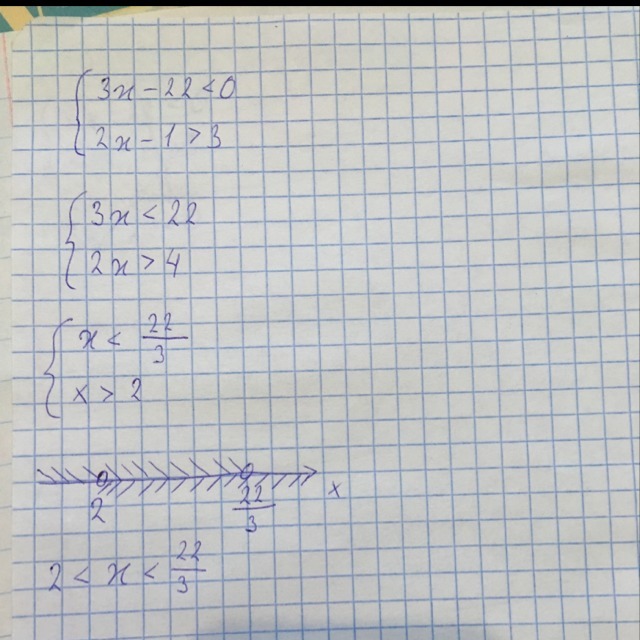 { 3x - 22 < 0
2x - 1 > 3
{ 3x < 22
2x > 4
{ x < 22/3
x > 2
2 22/3 x
2 < x < 22/3